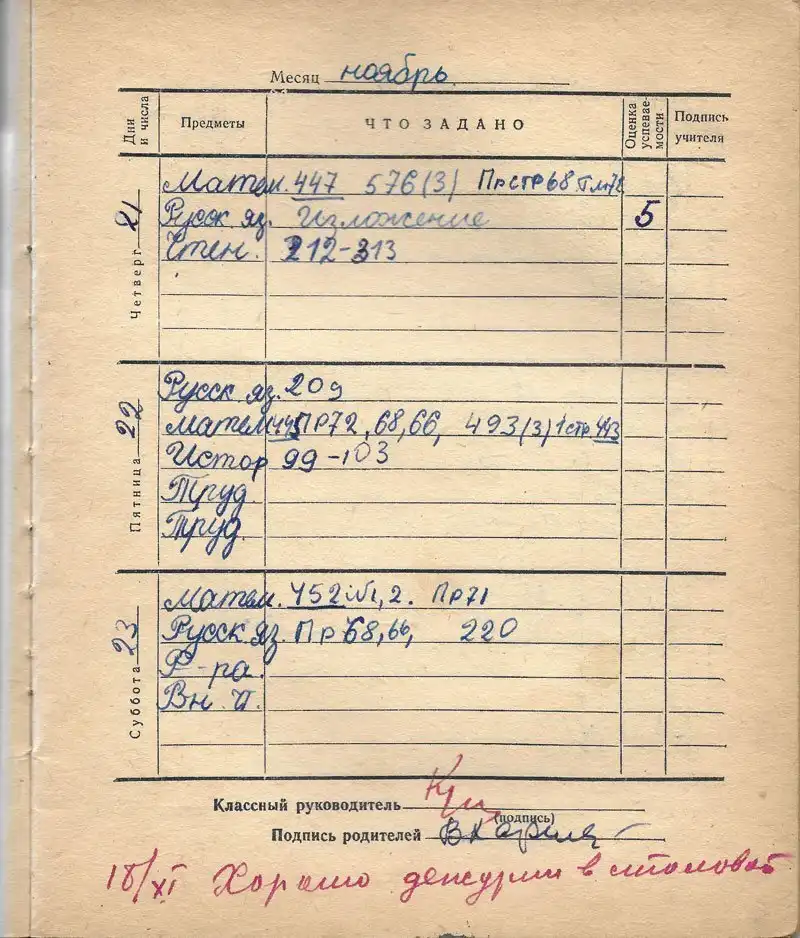 Месяц ноябрь
Дни и числа Предметы ЧТО ЗАДАНО Оценка успевае-мости Подпись учителя
Четверг 21
Матем. 447 576(3) Пр стр 68
Русск яз. Изложение 5
Чтен. 212-313
Пятница 22
Русск яз. 209
Матем ПР72, 68, 66, 493(3) 1 стр. 443
Истор 99-103
Труд
Труд.
Суббота 23
Матем. 452 №1, 2. Пр71
Русск яз. Пр 68, 66, 220
Ф-ра.
Вн. Ч.
Классный руководитель
(подпись)
Подпись родителей
18/XI Хорошо дежурил в столовой